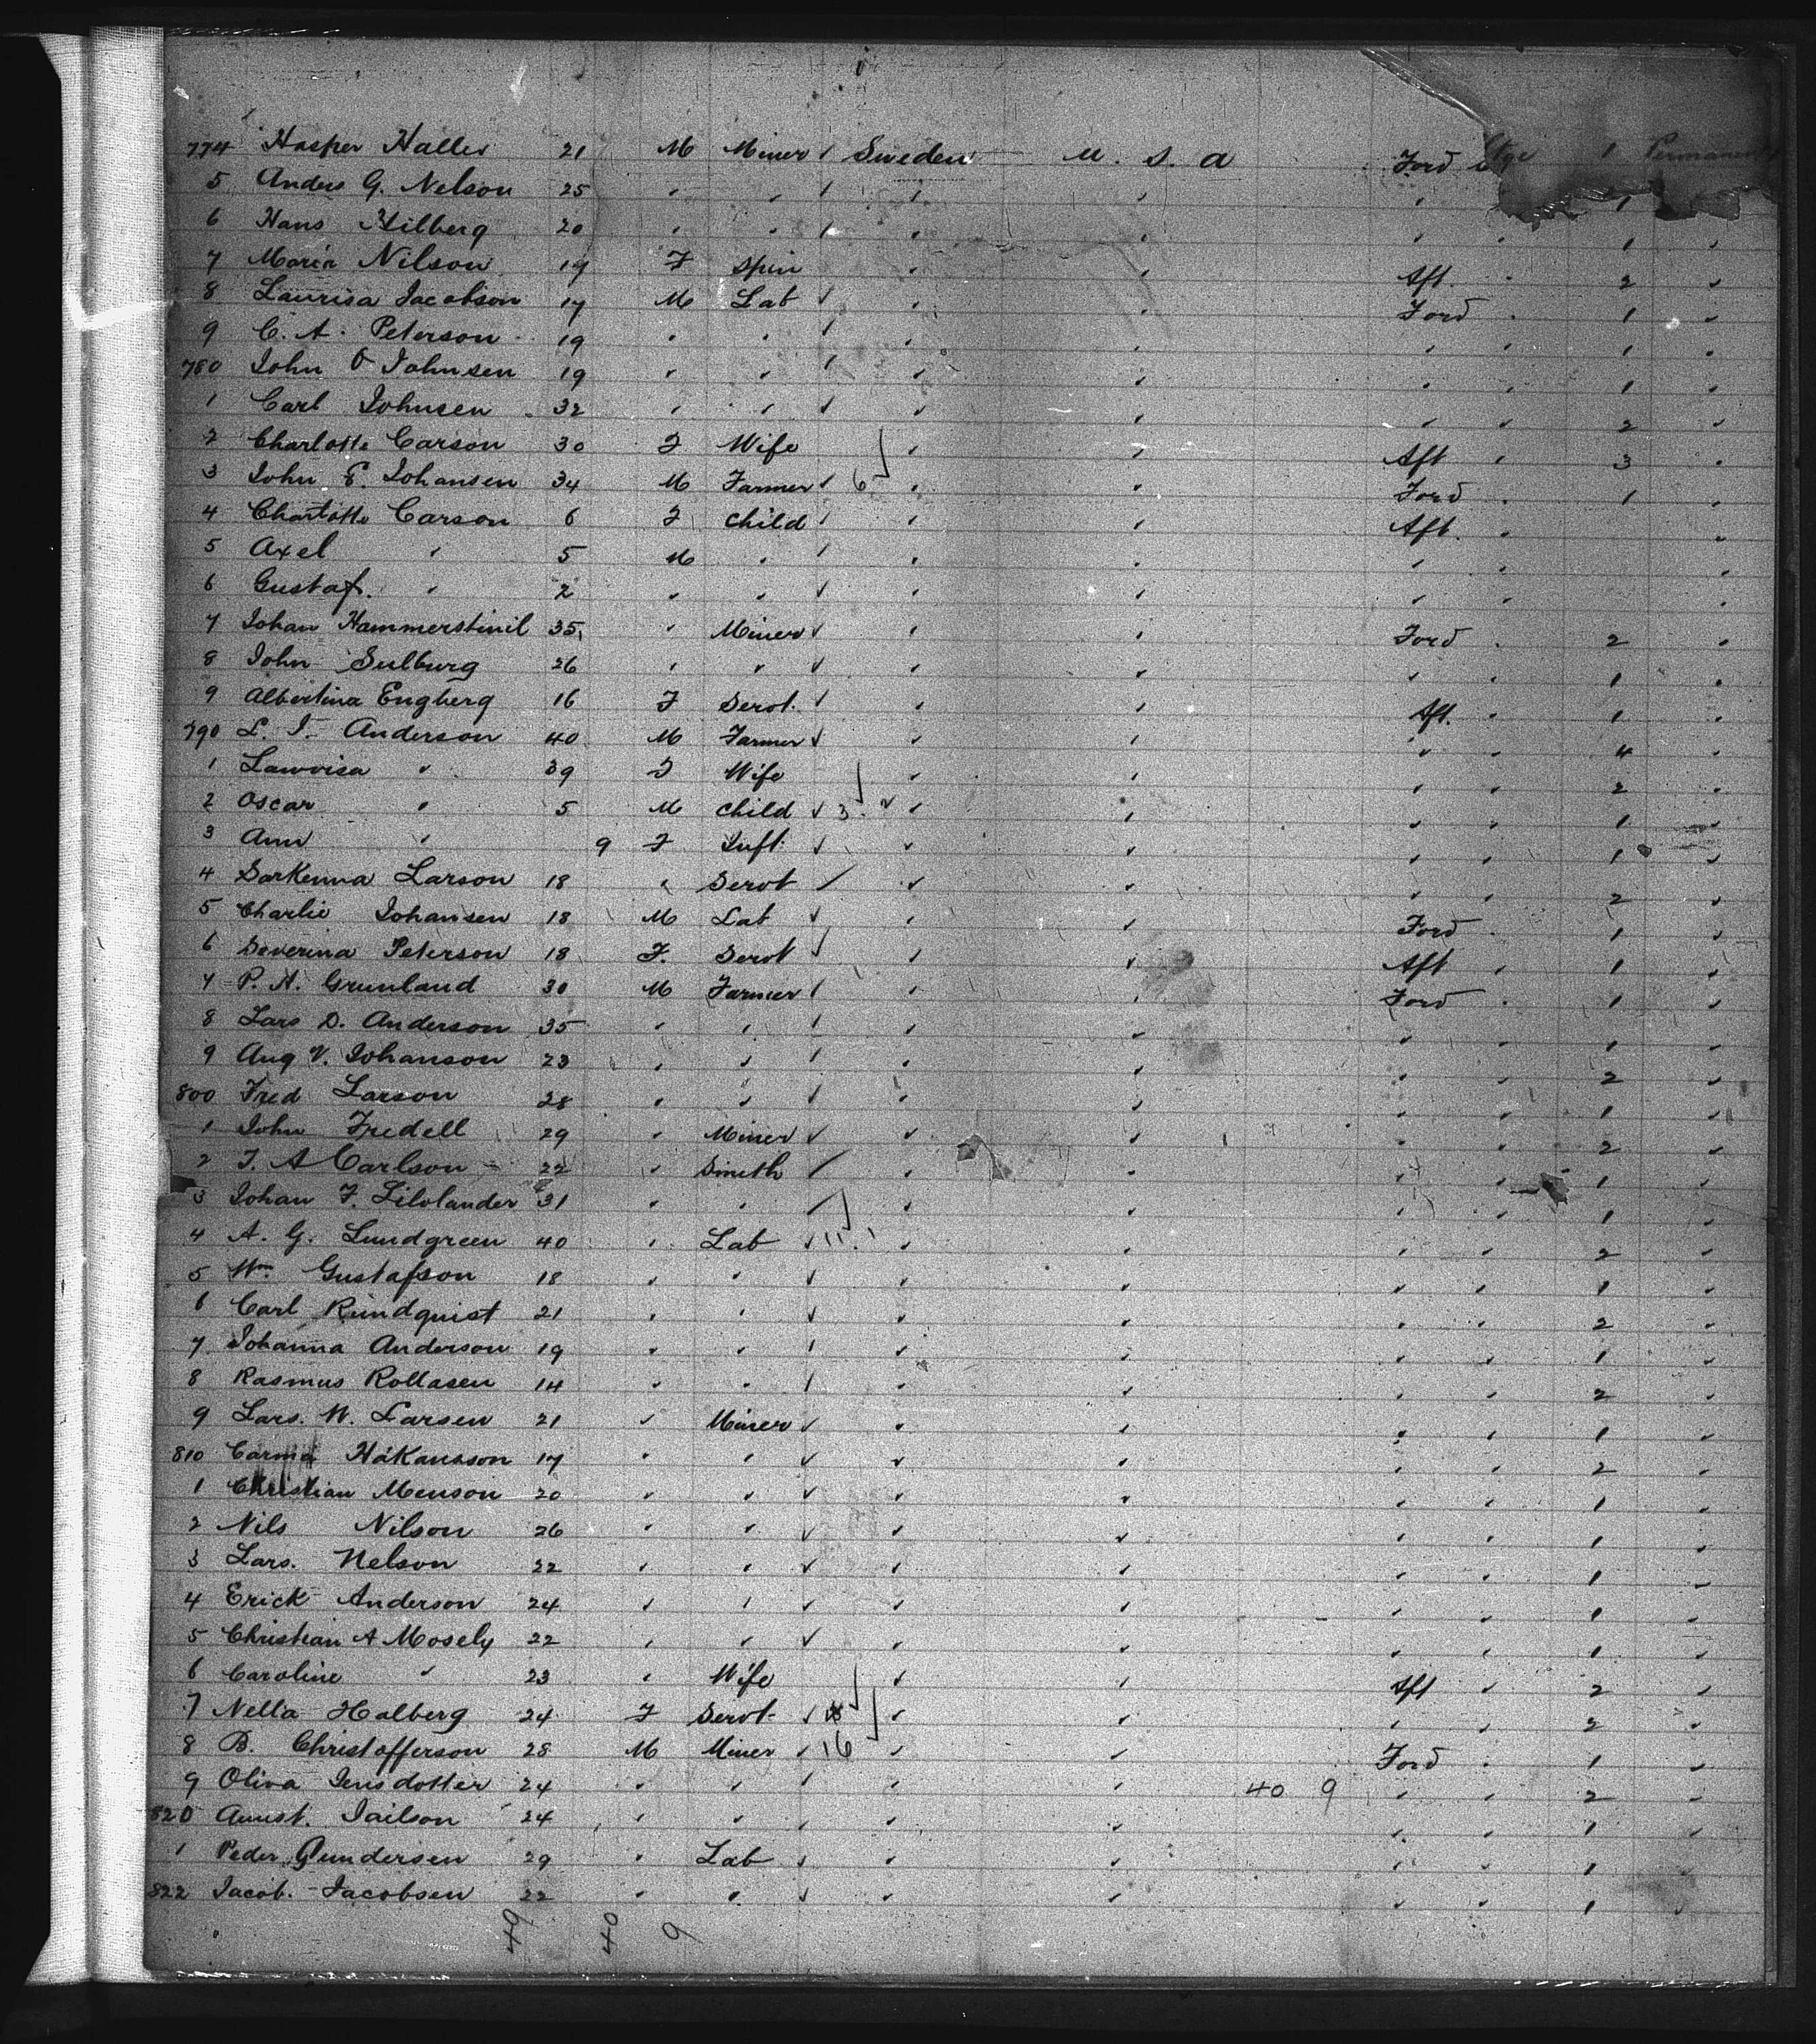 774 Hasper Haller 21 M Miner / Sweden U. S. A Ford Stge 1 Permanent
5 Anders G. Nelson 25 " " / " " " 1
6 Hans Hilberg 20 " " / " " " " 1 "
7 Maria Nilson 17 F Spin " " Aft. " 2 "
8 Laurisa Jacobson 17 M Lab ✓ " " Ford " 1 "
9 C. A. Peterson 19 " " / " " " " 1 "
780 John O Johnsen 19 " " / " " " " 1 "
1 Carl Johnsen 32 " " ✓ " " " " 2 "
2 Charlotte Carson 30 F Wife " " Aft " 3 "
3 John E. Johansen 34 M Farmer / 6 " " Ford " 1 "
4 Charlotte Carson 6 F Child / " " Aft. " "
5 Axel " 5 M " / " " " " "
6 Gustaf. " 2 " " ✓ " " " " "
7 Johan Hammerstinil 35 " Miner ✓ " " Ford " 2 "
8 John Sulburg 26 " " ✓ " " " " 1 "
9 Albertina Engberg 16 F Servt. / " " Aft. " 1 "
790 L. J. Anderson 40 M Farmer ✓ " " " " 4 "
1 Lawvisa " 39 F Wife " " " " 2 "
2 Oscar " 5 M Child ✓ 3 ✓ " " " " 1 "
3 Ann " 9 F Inft. ✓ " " " " 1 "
4 Sarkenna Larson 18 " Servt / " " " " 2 "
5 Charlie Johansen 18 M Lab ✓ " " Ford " 1 "
6 Severina Peterson 18 F. Servt ✓ " " Aft " 1 "
7 P. A. Grunland 30 M Farmer / " " Ford " 1 "
8 Lars D. Anderson 35 " " / " " " " 1 "
9 Aug V. Johanson 23 " " / " " " " 2 "
800 Fred Larson 28 " " ✓ " " " " 1 "
1 John Fredell 29 " Miner ✓ " " " " 2 "
2 J. A Carlson 22 " Smith / " " " " 1 "
3 Johan F. Lilolander 31 " " / " " " " 1 "
4 A. G. Lundgreen 40 " Lab ✓ 11 " " " " 2 "
5 Wm Gustafson 18 " " ✓ " " " " 1 "
6 Carl Rundquist 21 " " ✓ " " " " 2 "
7 Johanna Anderson 19 " " / " " " " 1 "
8 Rasmus Rollasen 14 " " / " " " " 2 "
9 Lars. W. Larsen 21 " Miner ✓ " " " " 1 "
810 Håkansson 17 " " ✓ " " " " 2 "
1 Christian Menson 20 " " ✓ " " " " 1 "
2 Nils Nilson 26 " " ✓ " " " " 1 "
3 Lars. Nelson 22 " " ✓ " " " " 1 "
4 Erick Anderson 24 " " ✓ " " " " 1 "
5 Christian A Mosely 22 " " ✓ " " " " 1 "
6 Caroline " 23 " Wife " " Aft " 2 "
7 Nella Halberg 24 F Servt ✓ " " " " 2 "
8 B. Christofferson 28 M Miner ✓ 16 " " Ford " 1 "
9 Oliva Jensdotter 24 " " / " " 40 9 " " 2 "
820 Jailson 24 " " " " " " " 1 "
1 Peder Gundersen 29 " Lab ✓ " " " " 1 "
822 Jacob. Jacobsen 22 " " ✓ " " " " 1 "
49 40 9